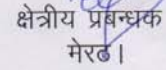 क्षेत्रीय प्रबन्धक
मेरठ।